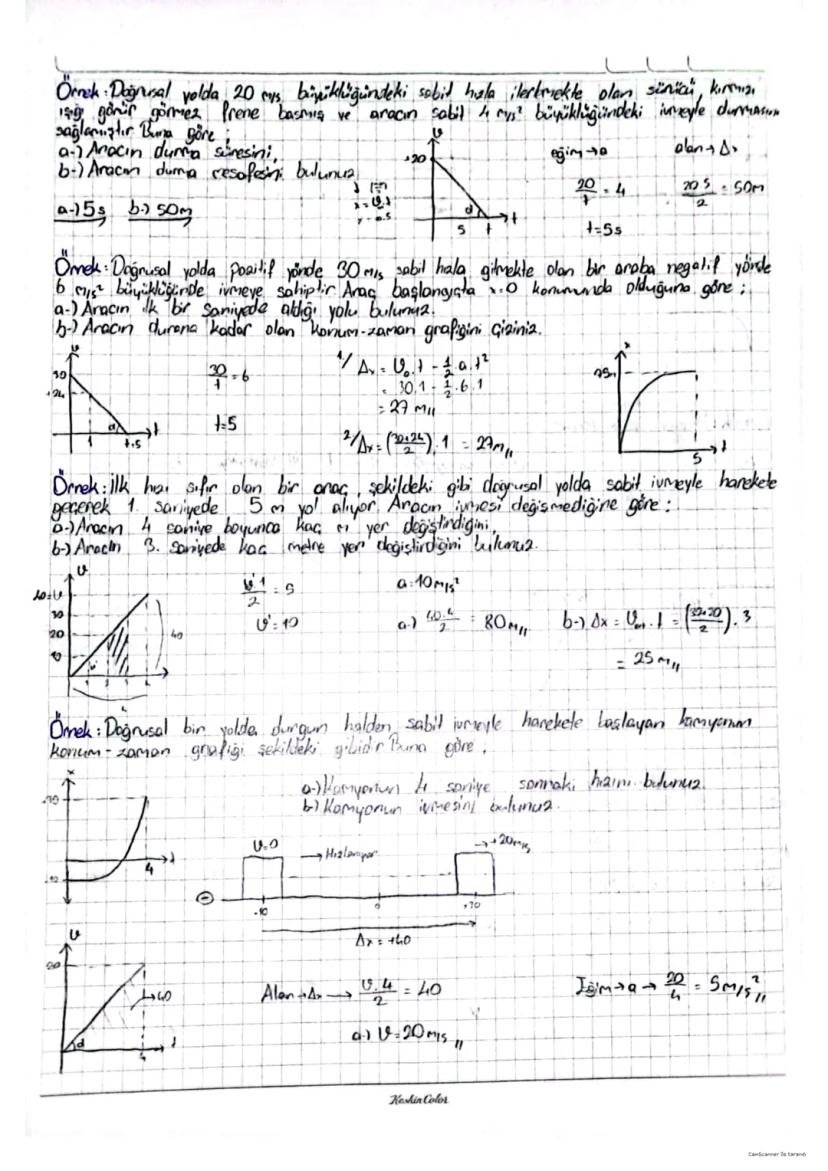 Örnek: Doğrusal yolda 20 m/s büyüklüğündeki sabit hızla ilerlemekte olan sürücü, kırmızı
ışığı görür görmez frene basmış ve aracın sabit 4 m/s² büyüklüğündeki ivmeyle durmasını
sağlamıştır Buna göre;
a-) Aracın durma süresini,
b-) Aracın durma mesafesini bulunuz
a-) 5s b-) 50m
v
+20
α
5 t t
eğim → a
20/t = 4
t=5s
alan → Δx
20.5/2 = 50m
Örnek: Doğrusal yolda pozitif yönde 30 m/s sabit hızla gitmekte olan bir araba negatif yönde
6 m/s² büyüklüğünde ivmeye sahiptir Araç başlangıçta x=0 konumunda olduğuna göre;
a-) Aracın ilk bir saniyede aldığı yolu bulunuz.
b-) Aracın durana kadar olan konum-zaman grafiğini çiziniz.
v
30
+24
α
1 t=5 t
30/t = 6
t=5
1/ Δx = V₀.t - 1/2.a.t²
= 30.1 - 1/2.6.1
= 27 m//
2/ Δx = (30+24/2).1 = 27m//
x
75m
5 t
Örnek: İlk hızı sıfır olan bir araç, şekildeki gibi doğrusal yolda sabit ivmeyle harekete
geçerek 1. saniyede 5 m yol alıyor. Aracın ivmesi değişmediğine göre:
a-) Aracın 4 saniye boyunca kaç m yer değiştirdiğini,
b-) Aracın 3. saniyede kaç metre yer değiştirdiğini bulunuz.
v
40=v
30
20
10
40
1 2 3 4
4
v'.1/2 = 5
v'=10
a=10m/s²
a-) 40.4/2 = 80m//
b-) Δx = Vort . t = (30+20/2) . 3
= 25m//
Örnek: Doğrusal bir yolda, durgun halden sabit ivmeyle harekete başlayan kamyonun
konum-zaman grafiği şekildeki gibidir Buna göre,
x
4 t
a-) Kamyonun 4 saniye sonraki hızını bulunuz.
b-) Kamyonun ivmesini bulunuz.
V=0
→ Hızlanıyor
→ +20m/s
-10 0
Δx = +40
v
20
→40
α
4 t
Alan → Δx → v.4/2 = 40
a-) V=20m/s //
Eğim → a → 20/4 = 5m/s² //
Keskin Color
CamScanner ile tarandı